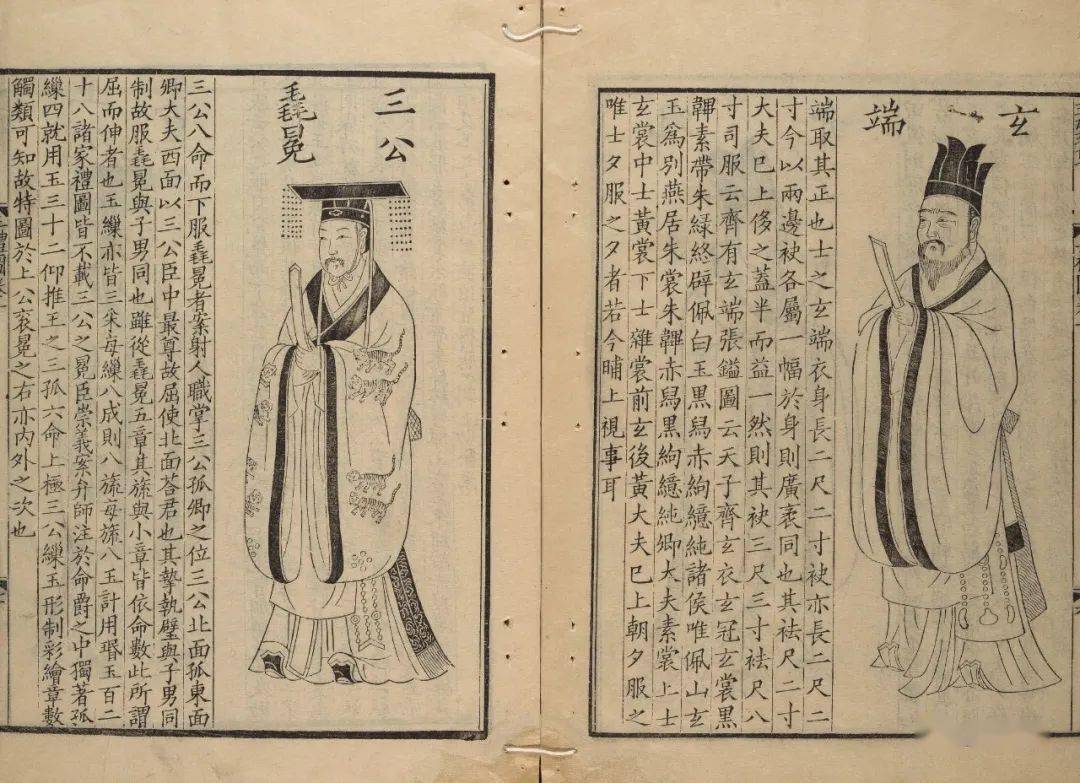 玄端
端取其正也士之玄端衣身長二尺二寸袂亦長二尺二
寸今以兩邊袂各屬一幅於身則廣袤同也其袪尺二寸
大夫巳上侈之蓋半而益一然則其袂三尺三寸袪尺八
寸司服云齊有玄端張鎰圖云天子齊玄衣玄冠玄裳黑
韠素帶朱綠終辟佩白玉黑舄赤絇繶純諸侯唯佩山玄
玉爲別燕居朱裳朱韠赤舄黑絇繶純卿大夫素裳上士
玄裳中士黃裳下士雜裳前玄後黃大夫巳上朝夕服之
唯士夕服之夕者若今晡上視事耳
三公
毳冕
三公八命而下服毳冕者案射人職掌三公孤卿之位三公北面孤東面
卿大夫西面以三公臣中最尊故屈使北面荅君也其摯執璧與子男同
制故服毳冕與子男同也雖從毳冕五章其旒與小章皆依命數此所謂
屈而伸者也玉繅亦皆三采每繅八成則八旒每旒八玉計用瑉玉百二
十八諸家禮圖皆不載三公之冕臣崇義案弁師注於命爵之中獨著孤
繅四就用玉三十二仰推王之三孤六命上極三公繅玉形制彩繪章數
觸類可知故特圖於上公袞冕之右亦內外之次也